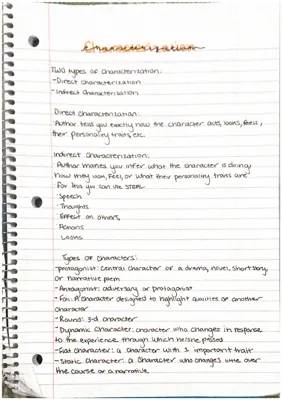 Characterization
TWO types of characterization:
-Direct characterization
-Indirect characterization
Direct characterization:
Author tells you exactly how the character acts, looks, feels,
their personality traits, etc.
Indirect characterization:
Author makes you infer what the character is doing
how they look, feel, or what their personality traits are
For this you can use STEAL
Speech
Thoughts
Effect on others
Actions
Looks
Types of characters:
-protagonist: central character of a drama, novel, short story
or narrative poem
-Antagonist: adversary of protagonist
-Foil: A character designed to highlight qualities of another
character
-Round: 3-d character
-Dynamic character: character who changes in response
to the experience through which he/she passed
-Flat character: a character with 1 important trait
-Static character: a character who changes little over
the course of a narrative.